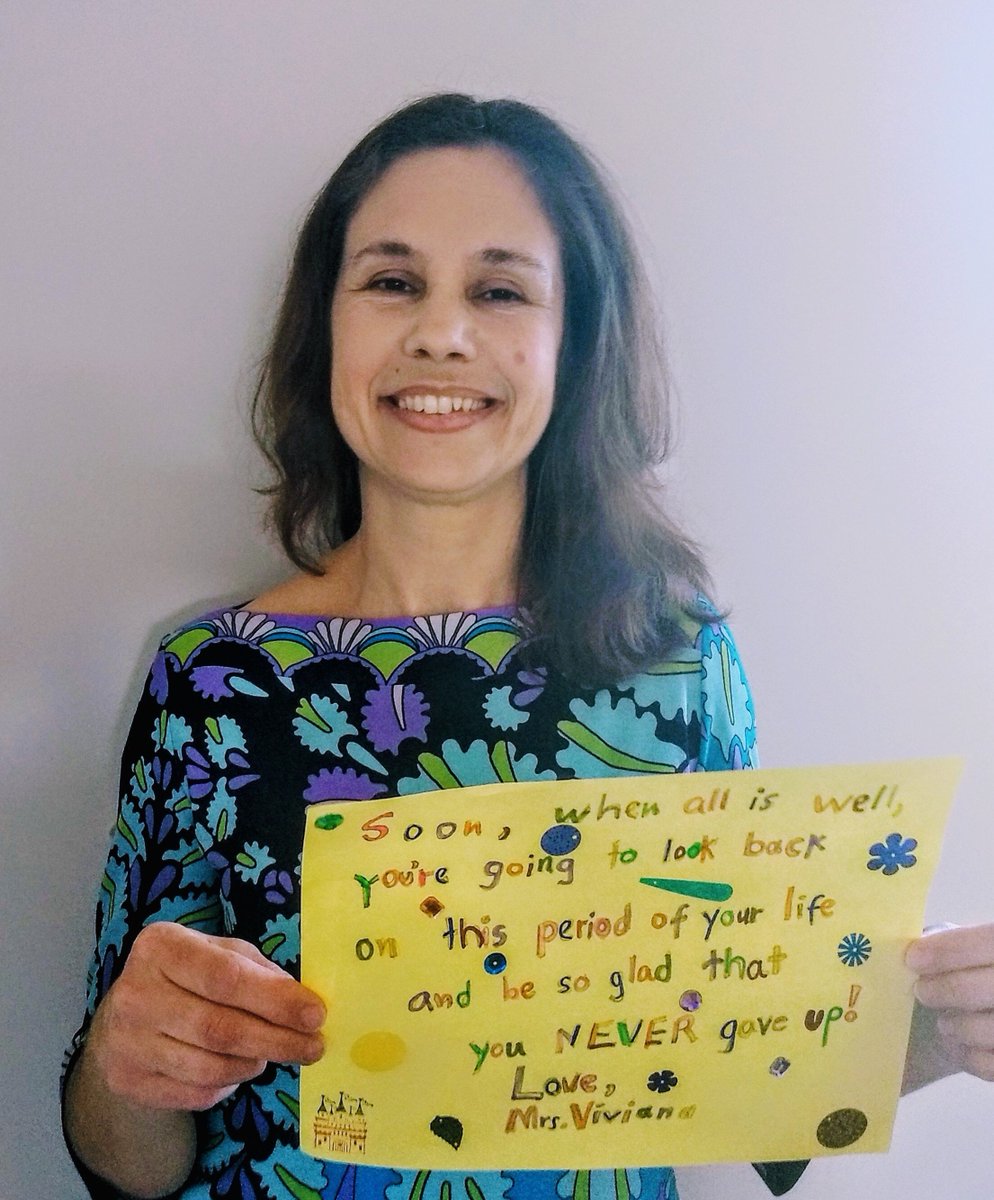 Soon, when all is well,
you're going to look back
on this period of your life
and be so glad that
you NEVER gave up!
Love,
Mrs. Viviana